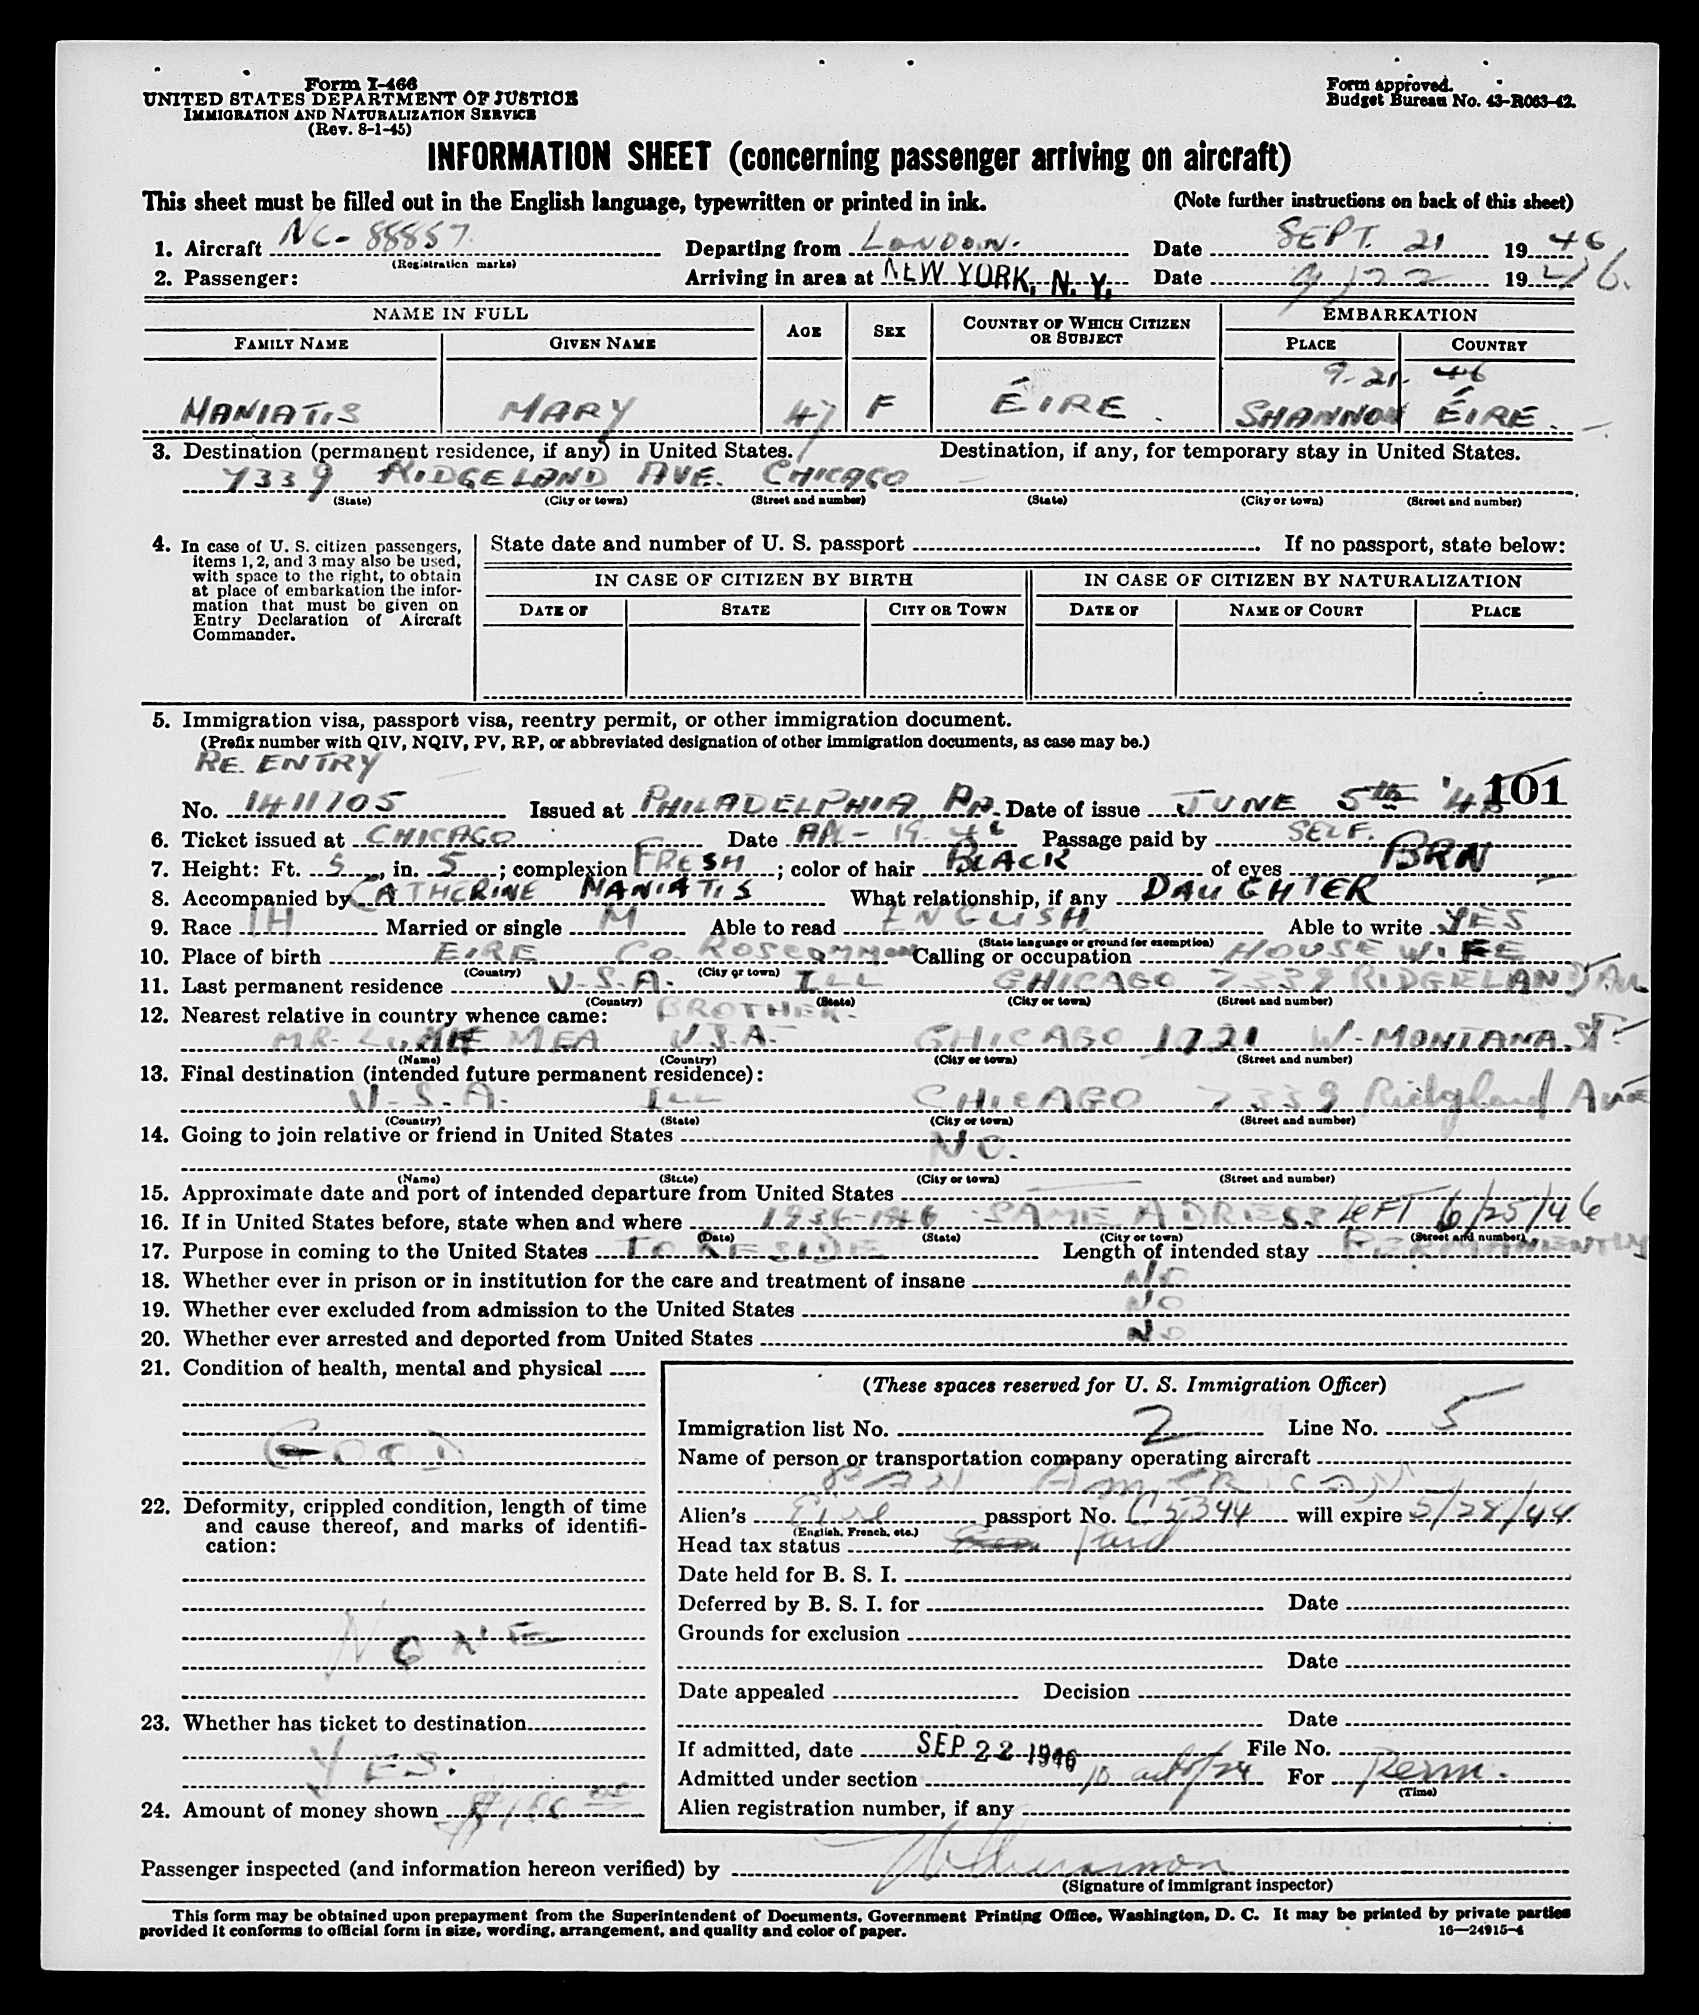 Form I-466
UNITED STATES DEPARTMENT OF JUSTICE
IMMIGRATION AND NATURALIZATION SERVICE
(Rev. 8-1-45)
Form approved.
Budget Bureau No. 43-R063-42.
INFORMATION SHEET (concerning passenger arriving on aircraft)
This sheet must be filled out in the English language, typewritten or printed in ink. (Note further instructions on back of this sheet)
1. Aircraft NC-88857 Departing from LONDON. Date SEPT. 21 1946
(Registration marks)
2. Passenger: Arriving in area at NEW YORK, N. Y. Date 9/22 1946.
NAME IN FULL AGE SEX COUNTRY OF WHICH CITIZEN OR SUBJECT EMBARKATION
FAMILY NAME GIVEN NAME PLACE COUNTRY
9-21-46
MANIATIS MARY 47 F ÉIRE. SHANNON ÉIRE.
3. Destination (permanent residence, if any) in United States. Destination, if any, for temporary stay in United States.
7339 RIDGELAND AVE. CHICAGO
(State) (City or town) (Street and number) (State) (City or town) (Street and number)
4. In case of U. S. citizen passengers, items 1, 2, and 3 may also be used, with space to the right, to obtain at place of embarkation the information that must be given on Entry Declaration of Aircraft Commander.
State date and number of U. S. passport If no passport, state below:
IN CASE OF CITIZEN BY BIRTH IN CASE OF CITIZEN BY NATURALIZATION
DATE OF STATE CITY OR TOWN DATE OF NAME OF COURT PLACE
5. Immigration visa, passport visa, reentry permit, or other immigration document.
(Prefix number with QIV, NQIV, PV, RP, or abbreviated designation of other immigration documents, as case may be.)
RE. ENTRY
101
No. 1411705 Issued at PHILADELPHIA PA. Date of issue JUNE 5th '46
6. Ticket issued at CHICAGO Date APL-19-46 Passage paid by SELF.
7. Height: Ft. 5, in. 5; complexion FRESH; color of hair BLACK of eyes BRN
8. Accompanied by CATHERINE MANIATIS What relationship, if any DAUGHTER
9. Race IH Married or single M Able to read ENGLISH Able to write YES
(State language or ground for exemption)
10. Place of birth EIRE CO. ROSCOMMON Calling or occupation HOUSE WIFE
(Country) (City or town)
11. Last permanent residence U.S.A. ILL CHICAGO 7339 RIDGELAND AV
(Country) (State) (City or town) (Street and number)
12. Nearest relative in country whence came: BROTHER-
MR. LUKE MEA U.S.A. CHICAGO 1721 W. MONTANA. ST.
(Name) (Country) (City or town) (Street and number)
13. Final destination (intended future permanent residence):
U.S.A. ILL CHICAGO 7339 Ridgland Ave
(Country) (State) (City or town) (Street and number)
14. Going to join relative or friend in United States NO.
(Name) (State) (City or town) (Street and number)
15. Approximate date and port of intended departure from United States
16. If in United States before, state when and where 1936-1946 SAME ADRESS LEFT 6/25/46
(Date) (State) (City or town) (Street and number)
17. Purpose in coming to the United States TO RESIDE Length of intended stay PERMANENTLY
18. Whether ever in prison or in institution for the care and treatment of insane NO
19. Whether ever excluded from admission to the United States NO
20. Whether ever arrested and deported from United States NO
21. Condition of health, mental and physical
GOOD
22. Deformity, crippled condition, length of time and cause thereof, and marks of identification:
NONE
23. Whether has ticket to destination
YES.
24. Amount of money shown $100 00
(These spaces reserved for U. S. Immigration Officer)
Immigration list No. 2 Line No. 5
Name of person or transportation company operating aircraft
PAN AMER
Alien's Eire passport No. C5394 will expire 5/28/44
(English, French, etc.)
Head tax status paid
Date held for B. S. I.
Deferred by B. S. I. for Date
Grounds for exclusion
Date
Date appealed Decision
Date
If admitted, date SEP 22 1946 File No.
Admitted under section 10 act of 24 For Perm.
(Time)
Alien registration number, if any
Passenger inspected (and information hereon verified) by
(Signature of immigrant inspector)
This form may be obtained upon prepayment from the Superintendent of Documents, Government Printing Office, Washington, D. C. It may be printed by private parties
provided it conforms to official form in size, wording, arrangement, and quality and color of paper. 16—24915-4